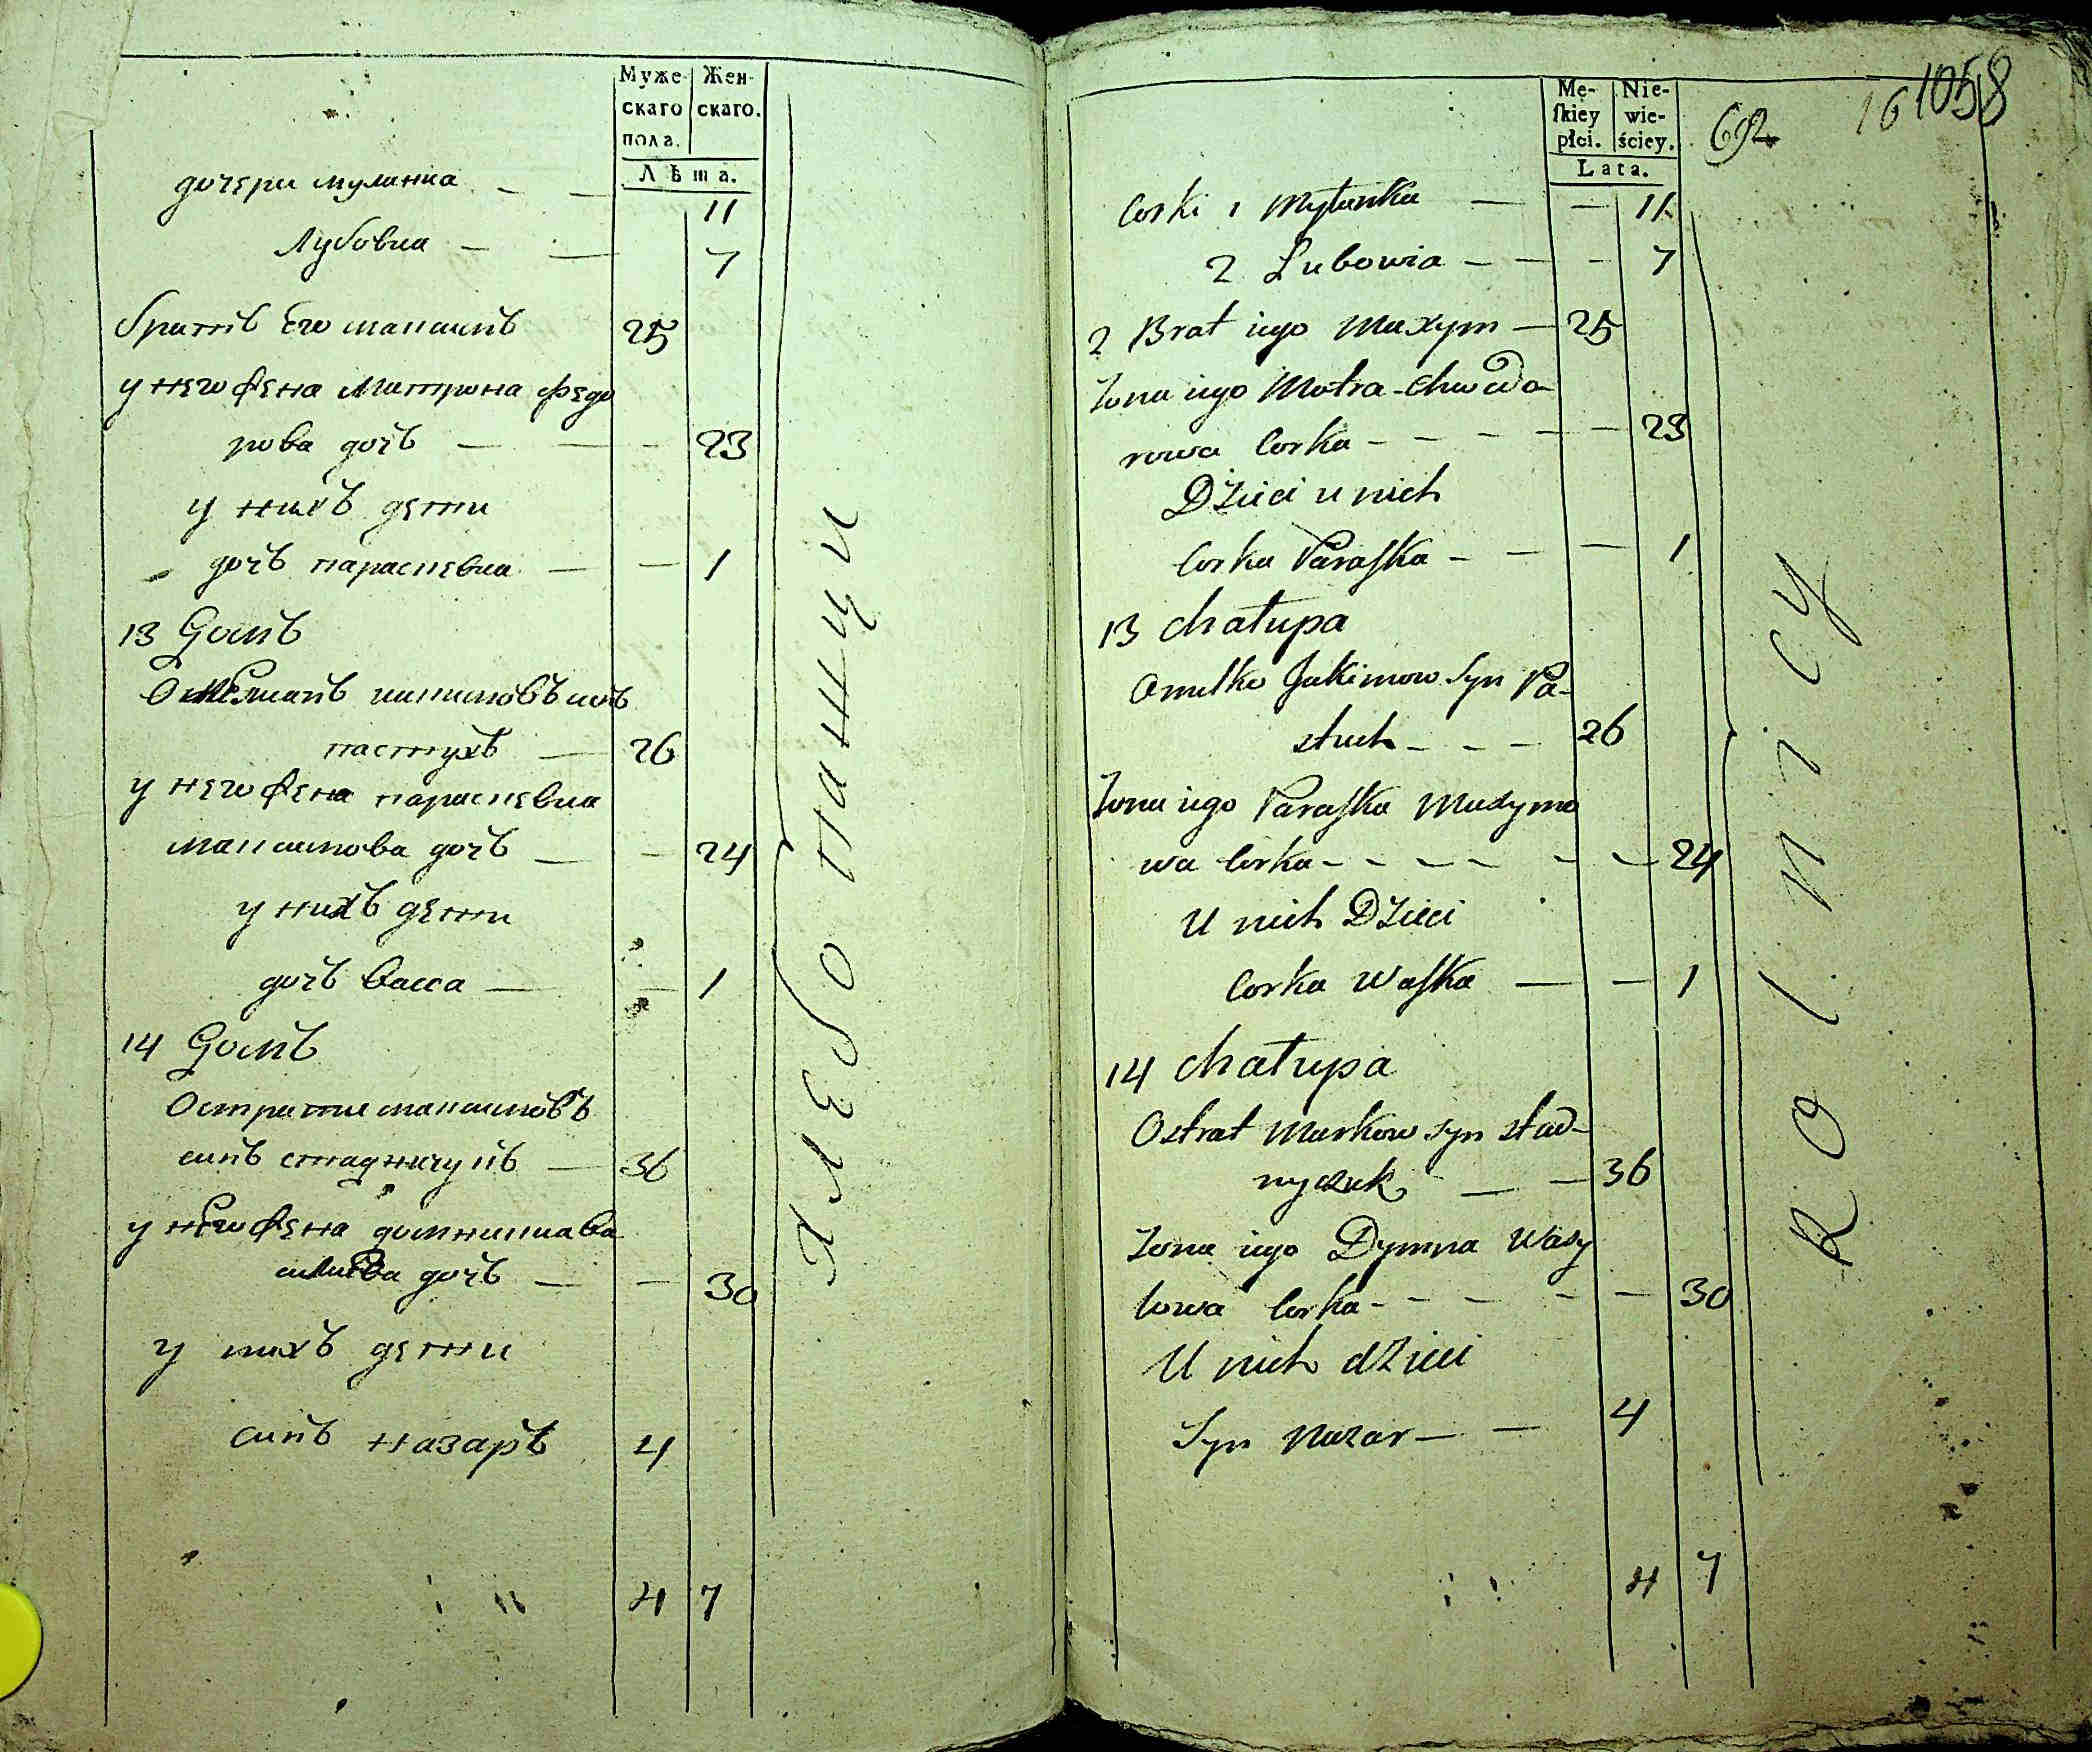 Муже- Жен-
скаго скаго.
пола.
Лѣта.
дочери мулянка — — 11
Лубовиа — — 7
братъ Его максимъ 25
у него жена Матрона федо
рова дочъ — — — 23
у нихъ дети
дочъ параскевиа — — 1
13 Домъ
Омелианъ иакимовъ синъ
пастухъ — 26
у него жена параскевиа
максимова дочъ — — 24
у нихъ дети
дочъ васса — — 1
14 Домъ
Остратий максимовъ
синъ стадничукъ — 36
у него жена домникиа ва
силиева дочъ — — 30
у нихъ дети
синъ назаръ 4
4 7
хлебопанци
Mę- Nie-
ſkiey wie-
płci. ściey.
Lata.
692
16 1058
Corki 1 Mylanka — — 11
2 Lubowia — — — 7
2 Brat iego Maxym — 25
Zona iego Motra Chwedo
rowa Corka — — — — — 23
Dzieci u nich
Corka Paraſka — — — 1
13 Chałupa
Omelko Jakimow Syn Pa-
stuch — — — 26
Zona iego Paraſka Maxymo
wa Corka — — — — — — 24
U nich Dzieci
Corka Waſka — — 1
14 Chałupa
Ostrat Markow syn stad-
nyczuk — — 36
Zona iego Dymna Wasy
lowa Corka — — — — — 30
U nich dzieci
Syn Nazar — — 4
4 7
Rolnicy